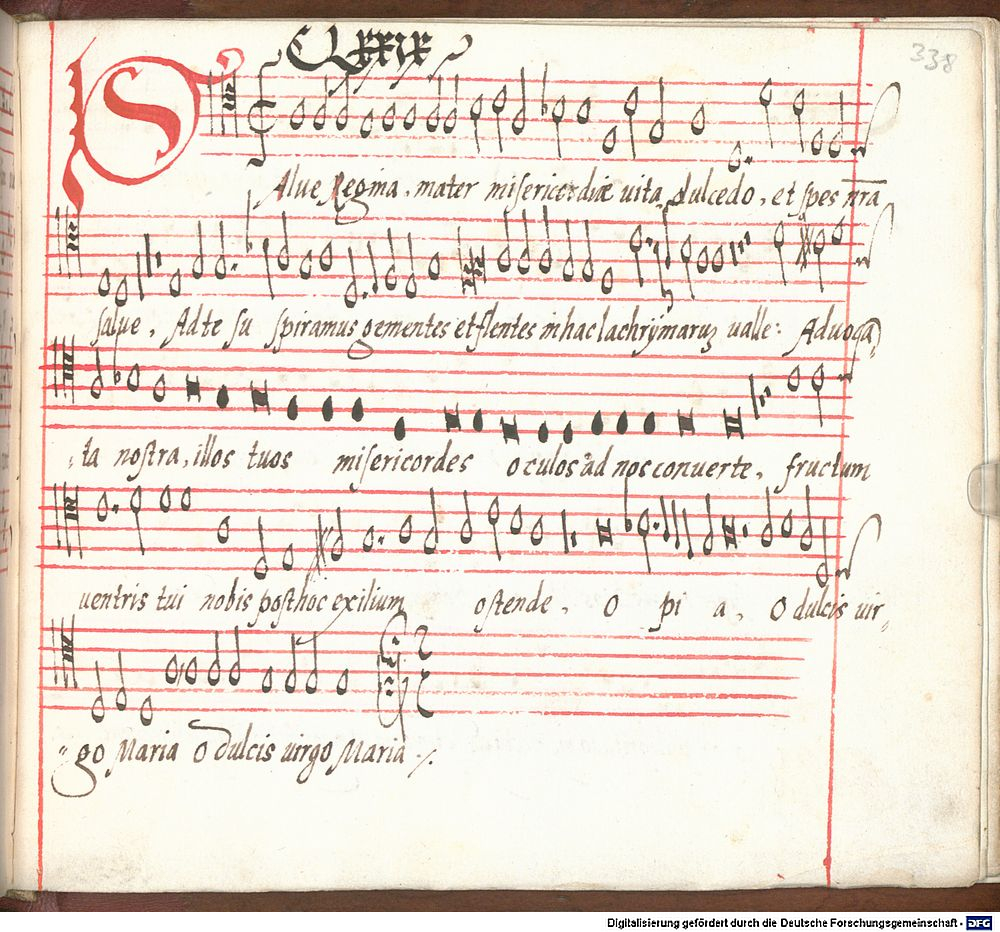 CLXXIX
338
SAlue Regina, mater misericordiæ uita, dulcedo, et spes nr̄a
salue, Ad te su spiramus gementes et flentes in hac lachrÿmaruʒ ualle: Aduoca,
,ta nostra, illos tuos misericordes oculos ad nos conuerte, fructum
uentris tui nobis post hoc exilium ostende, O pi a, O dulcis uir-
-go Maria O dulcis uirgo Maria ./.
Digitalisierung gefördert durch die Deutsche Forschungsgemeinschaft - DFG